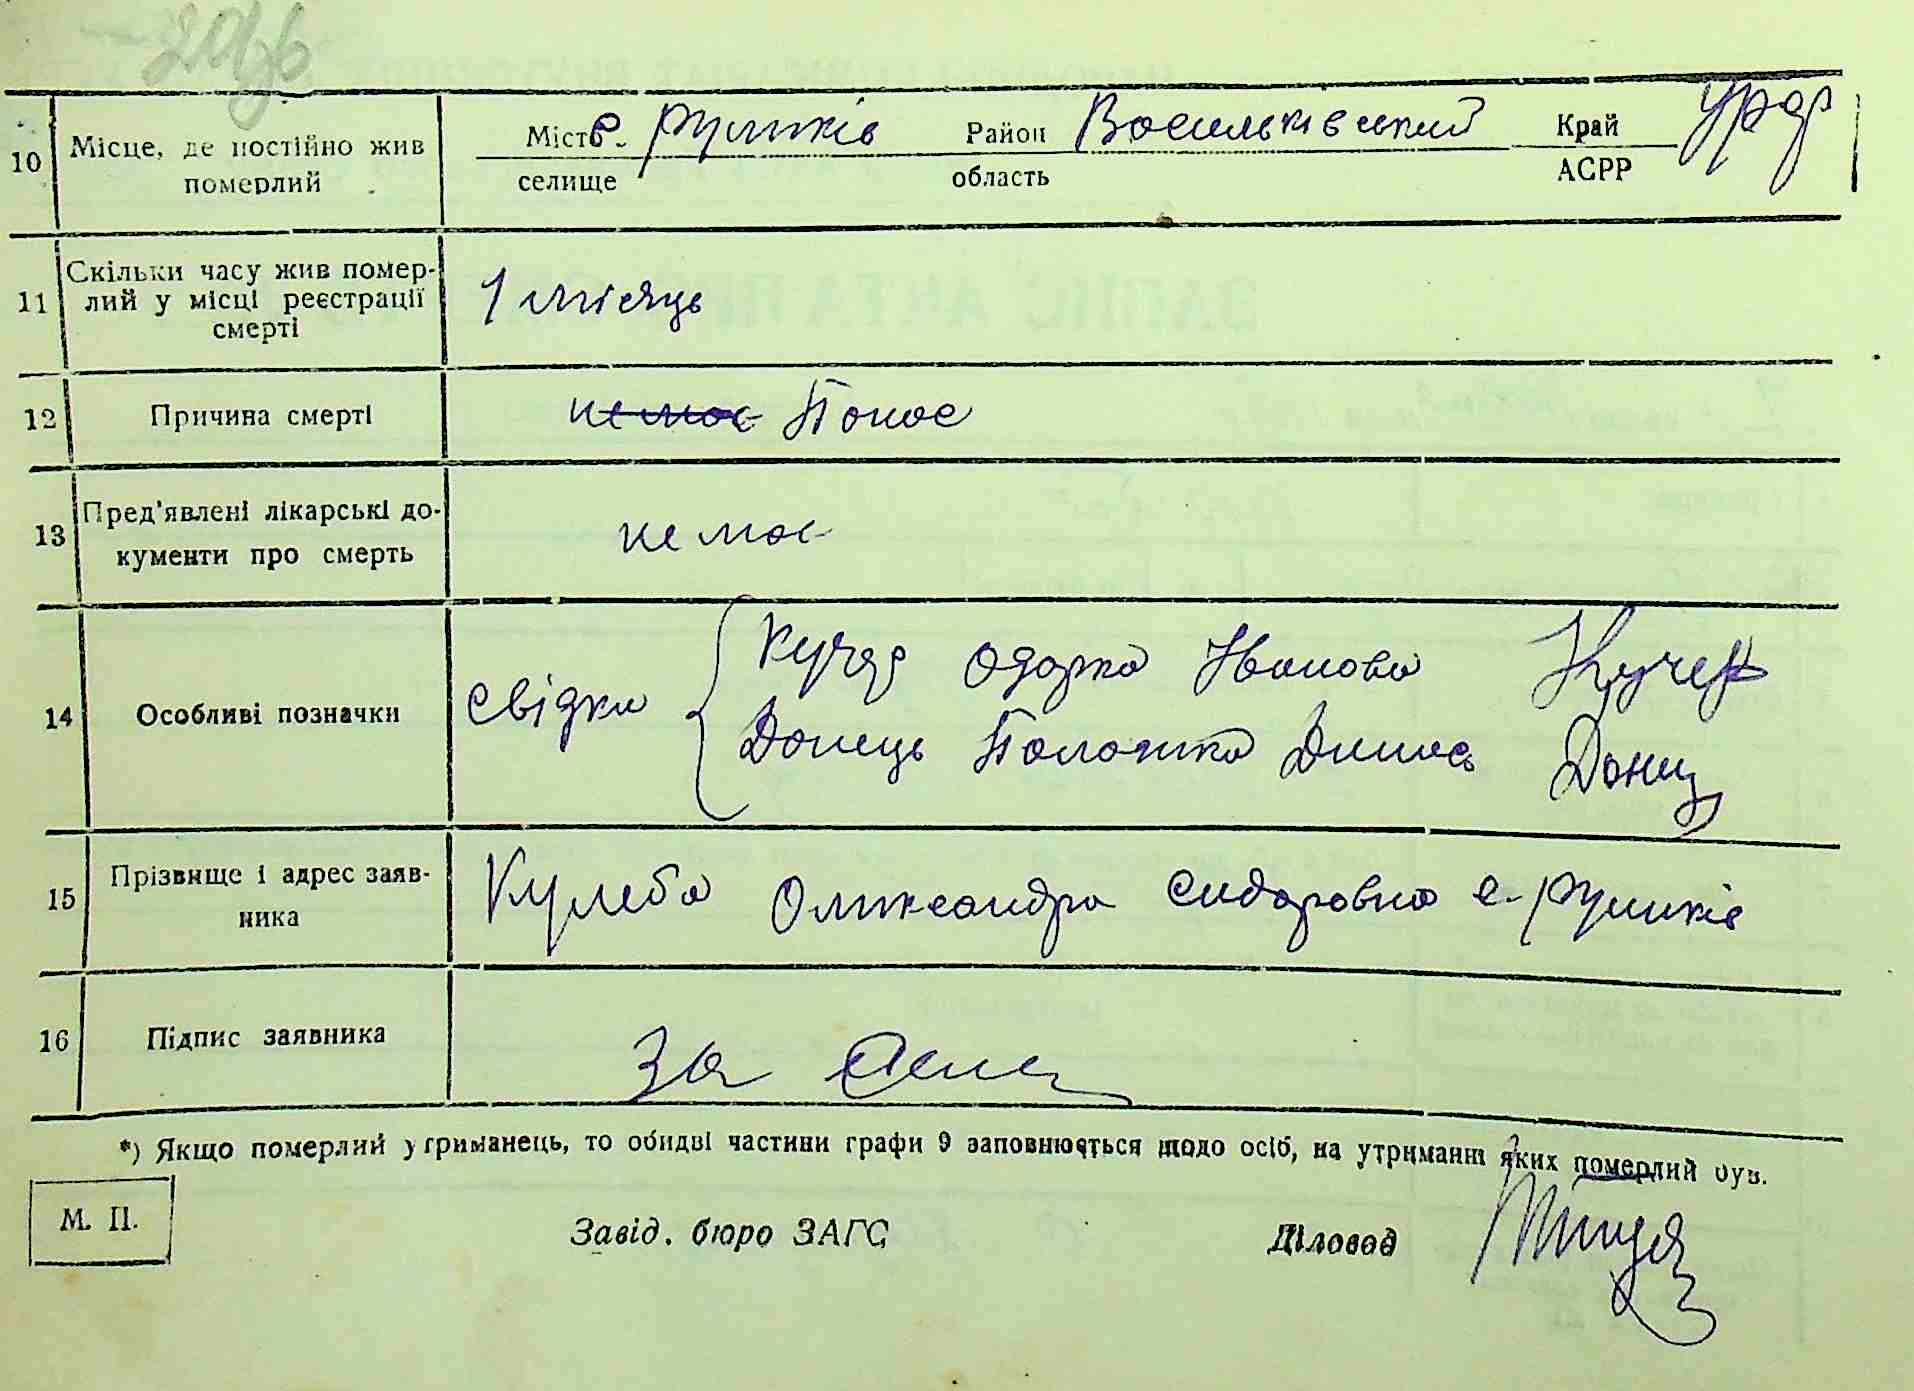 10 Місце, де постійно жив померлий Місто с. Рушків Район Васильківський Край УРСР
селище область АСРР
11 Скільки часу жив померлий у місці реєстрації смерті 1 місяць
12 Причина смерті не має Понос
13 Пред'явлені лікарські документи про смерть не має
14 Особливі позначки свідки Кучер Одарка Іванова Кучер
Донець Палажка Донец
15 Прізвище і адрес заявника Кулеба Олександра Сидоровна с. Рушків
16 Підпис заявника За
*) Якщо померлий утриманець, то обидві частини графи 9 заповнюється щодо осіб, на утриманні яких померлий був.
М. П. Завід. бюро ЗАГС Діловод